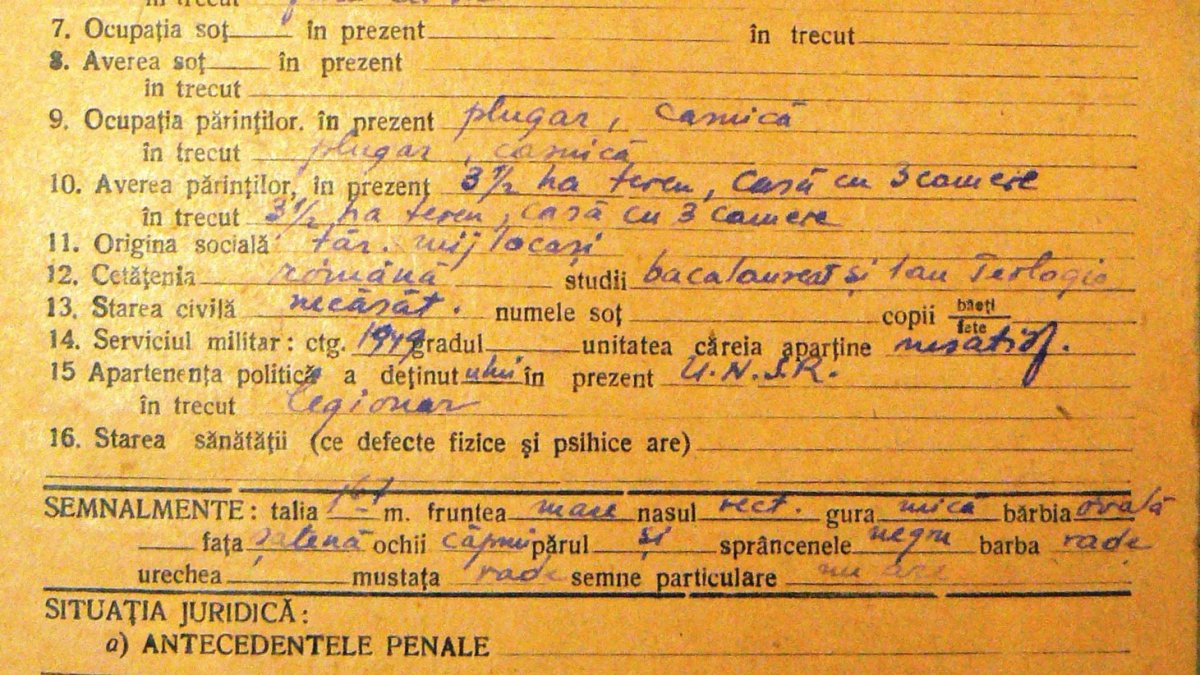 în trecut
7. Ocupația soț în prezent în trecut
8. Averea soț în prezent
în trecut
9. Ocupația părinților. în prezent plugar, casnică
în trecut plugar, casnică
10. Averea părinților, în prezent 3 1/2 ha teren, casă cu 3 camere
în trecut 3 1/2 ha teren, casă cu 3 camere
11. Origina socială țăr. mijlocași
12. Cetățenia română studii bacalaureat și 1 an Teologie
13. Starea civilă necăsăt. numele soț copii băeți
fete
14. Serviciul militar: ctg. 1949 gradul unitatea căreia aparține nesatisf.
15 Apartenența politică a deținutului în prezent
în trecut legionar
16. Starea sănătății (ce defecte fizice și psihice are)
SEMNALMENTE: talia m. fruntea mare nasul rect. gura mică bărbia ovală
fața șatenă ochii căprui părul și sprâncenele negru barba rade
urechea mustața rade semne particulare nu are
SITUAȚIA JURIDICĂ:
a) ANTECEDENTELE PENALE